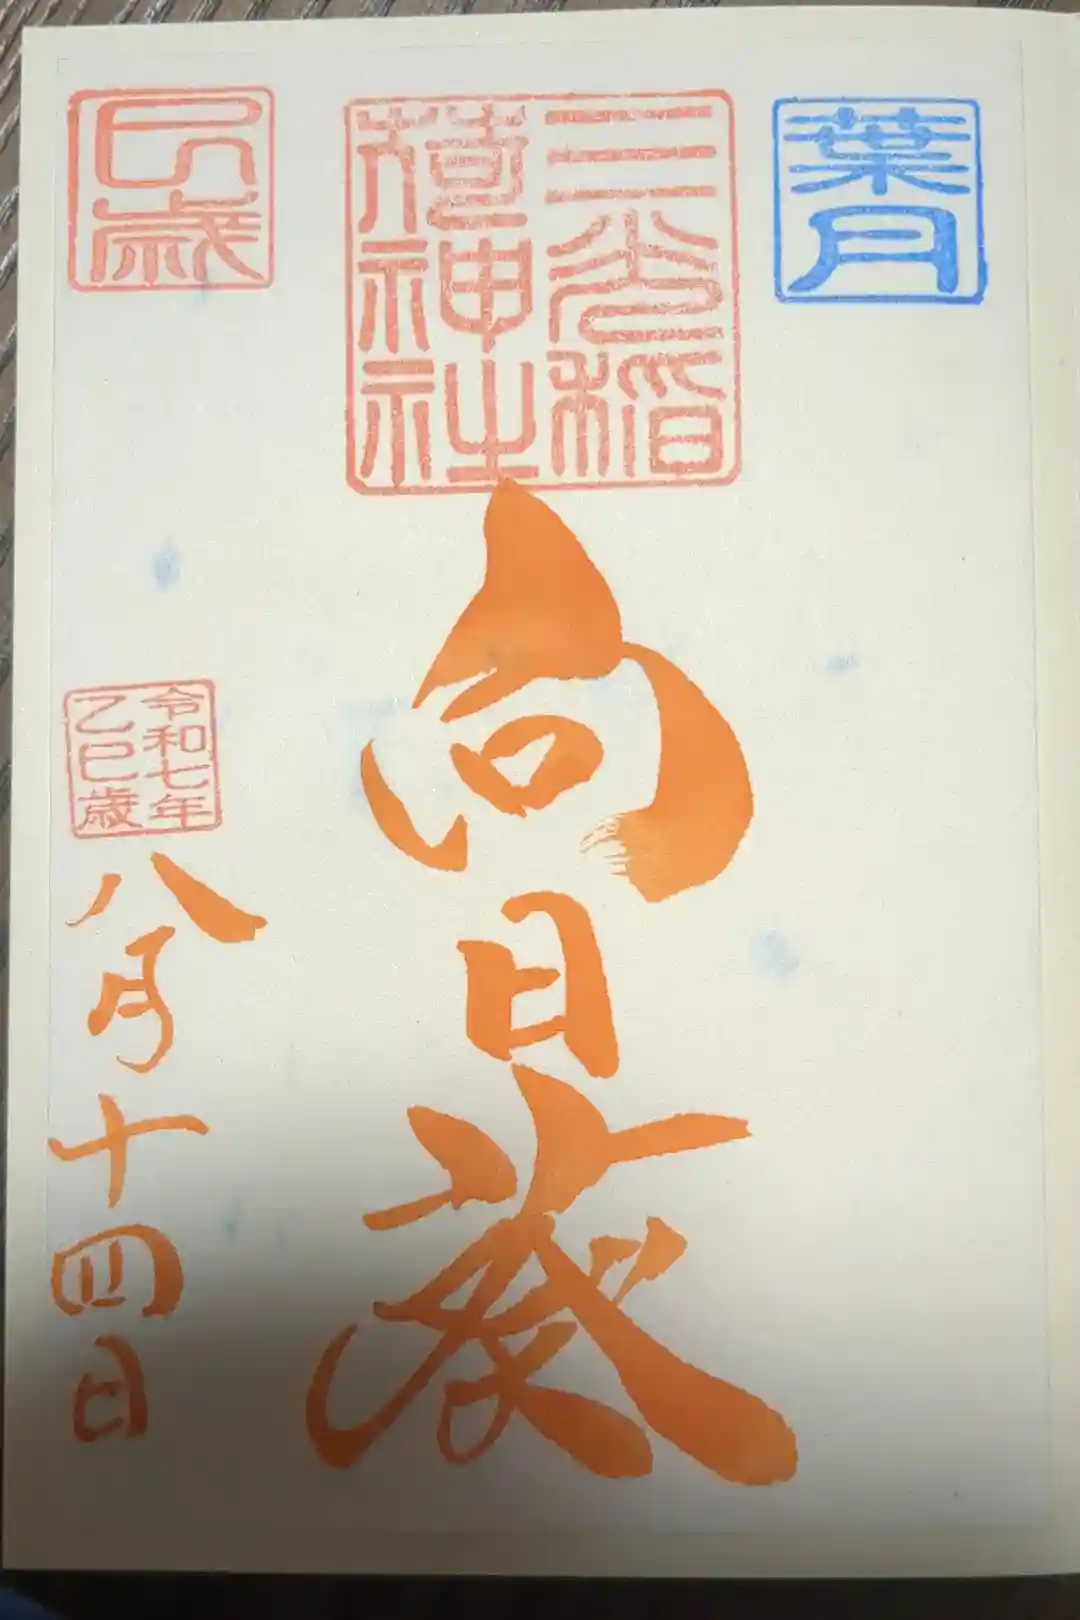 葉月
三光稲
荷神社
向日葵
巳歳
令和七年
乙巳歳
八月十四日